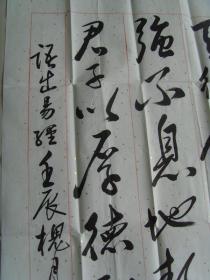 强不息地
君子以厚德
语出易經壬辰槐月